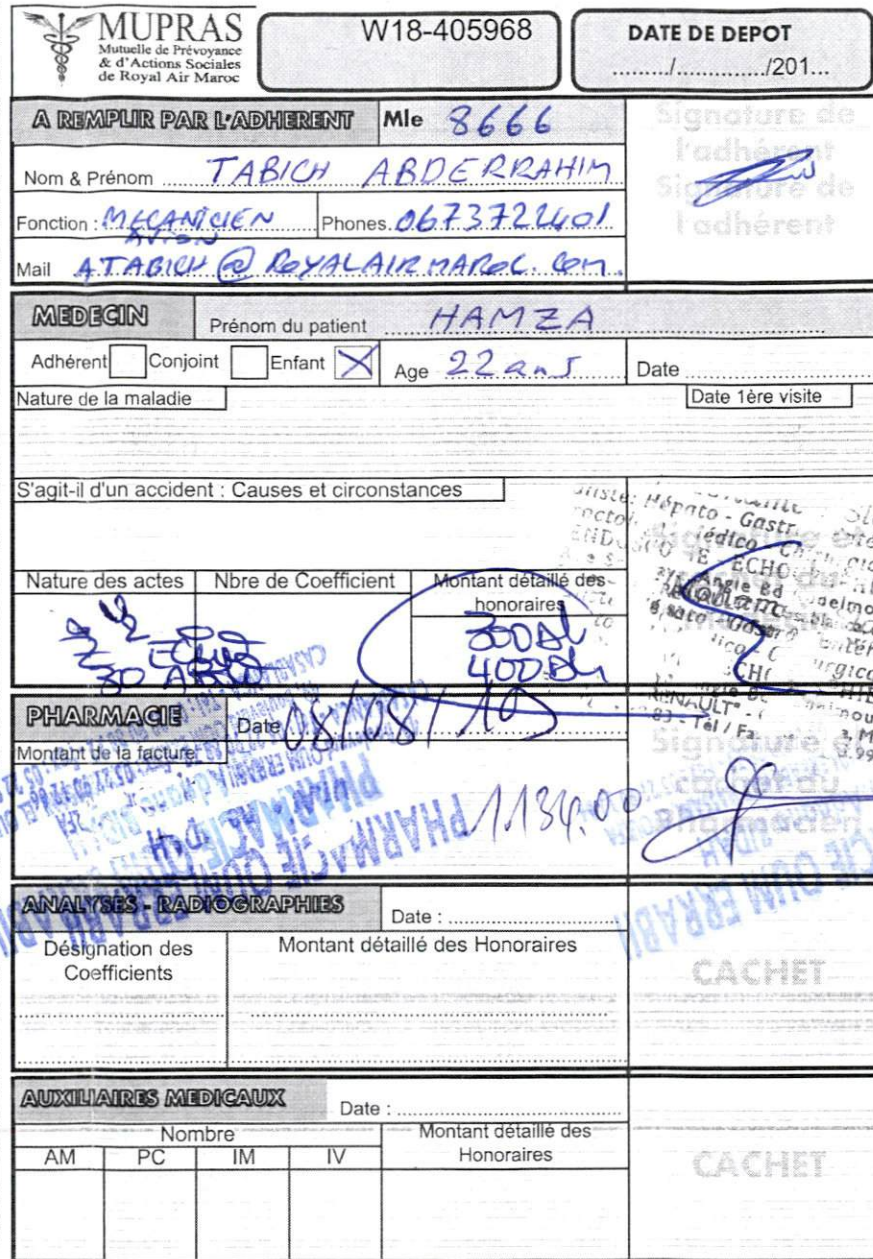 MUPRAS
Mutuelle de Prévoyance
& d'Actions Sociales
de Royal Air Maroc
W18-405968
DATE DE DEPOT
........./.............../201...
A REMPLIR PAR L'ADHERENT Mle 8666
Signature de
l'adhérent
Signature de
l'adhérent
Nom & Prénom TABICH ABDERRAHIM
Fonction : MECANICIEN
AVION
Phones. 0673722401
Mail ATABICH @ ROYALAIRMAROC. COM.
MEDECIN
Prénom du patient HAMZA
Adhérent Conjoint Enfant X Age 22 ans Date
Nature de la maladie
Date 1ère visite
S'agit-il d'un accident : Causes et circonstances
Hépato - Gastr
Nature des actes
Nbre de Coefficient
Montant détaillé des
honoraires
300Dh
400Dh
PHARMACIE
Date 08/08/19
Montant de la facture
1134.00
PHARMACIE OUM ERRABII
ANALYSES - RADIOGRAPHIES
Date :
Désignation des
Coefficients
Montant détaillé des Honoraires
CACHET
AUXILIAIRES MEDICAUX
Date :
Nombre
Montant détaillé des
Honoraires
AM PC IM IV
CACHET